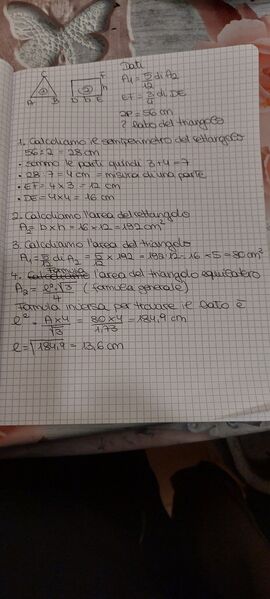 Dati
C
F
A₁ = 5/12 di A₂
① ② h
EF = 3/4 di DE
A B D b E
2P = 56 cm
? lato del triangolo
1. Calcoliamo il semiperimetro del rettangolo
56:2 = 28 cm
• sommo le parti quindi 3+4=7
• 28:7 = 4 cm = misura di una parte
• EF = 4 x 3 = 12 cm
• DE = 4x4 = 16 cm
2. Calcoliamo l'area del rettangolo
A= b x h = 16 x 12 = 192 cm²
3. Calcoliamo l'area del triangolo
A₁ = 5/12 di A₂ = 5/12 x 192 = 192:12 = 16 x 5 = 80 cm²
Formula
4. Calcoliamo l'area del triangolo equilatero
A₂ = l²·√3/4 (formula generale)
Formula inversa per trovare il lato è
l² = A x 4/√3 = 80 x 4/1,73 = 184,9 cm
l = √184,9 = 13,6 cm